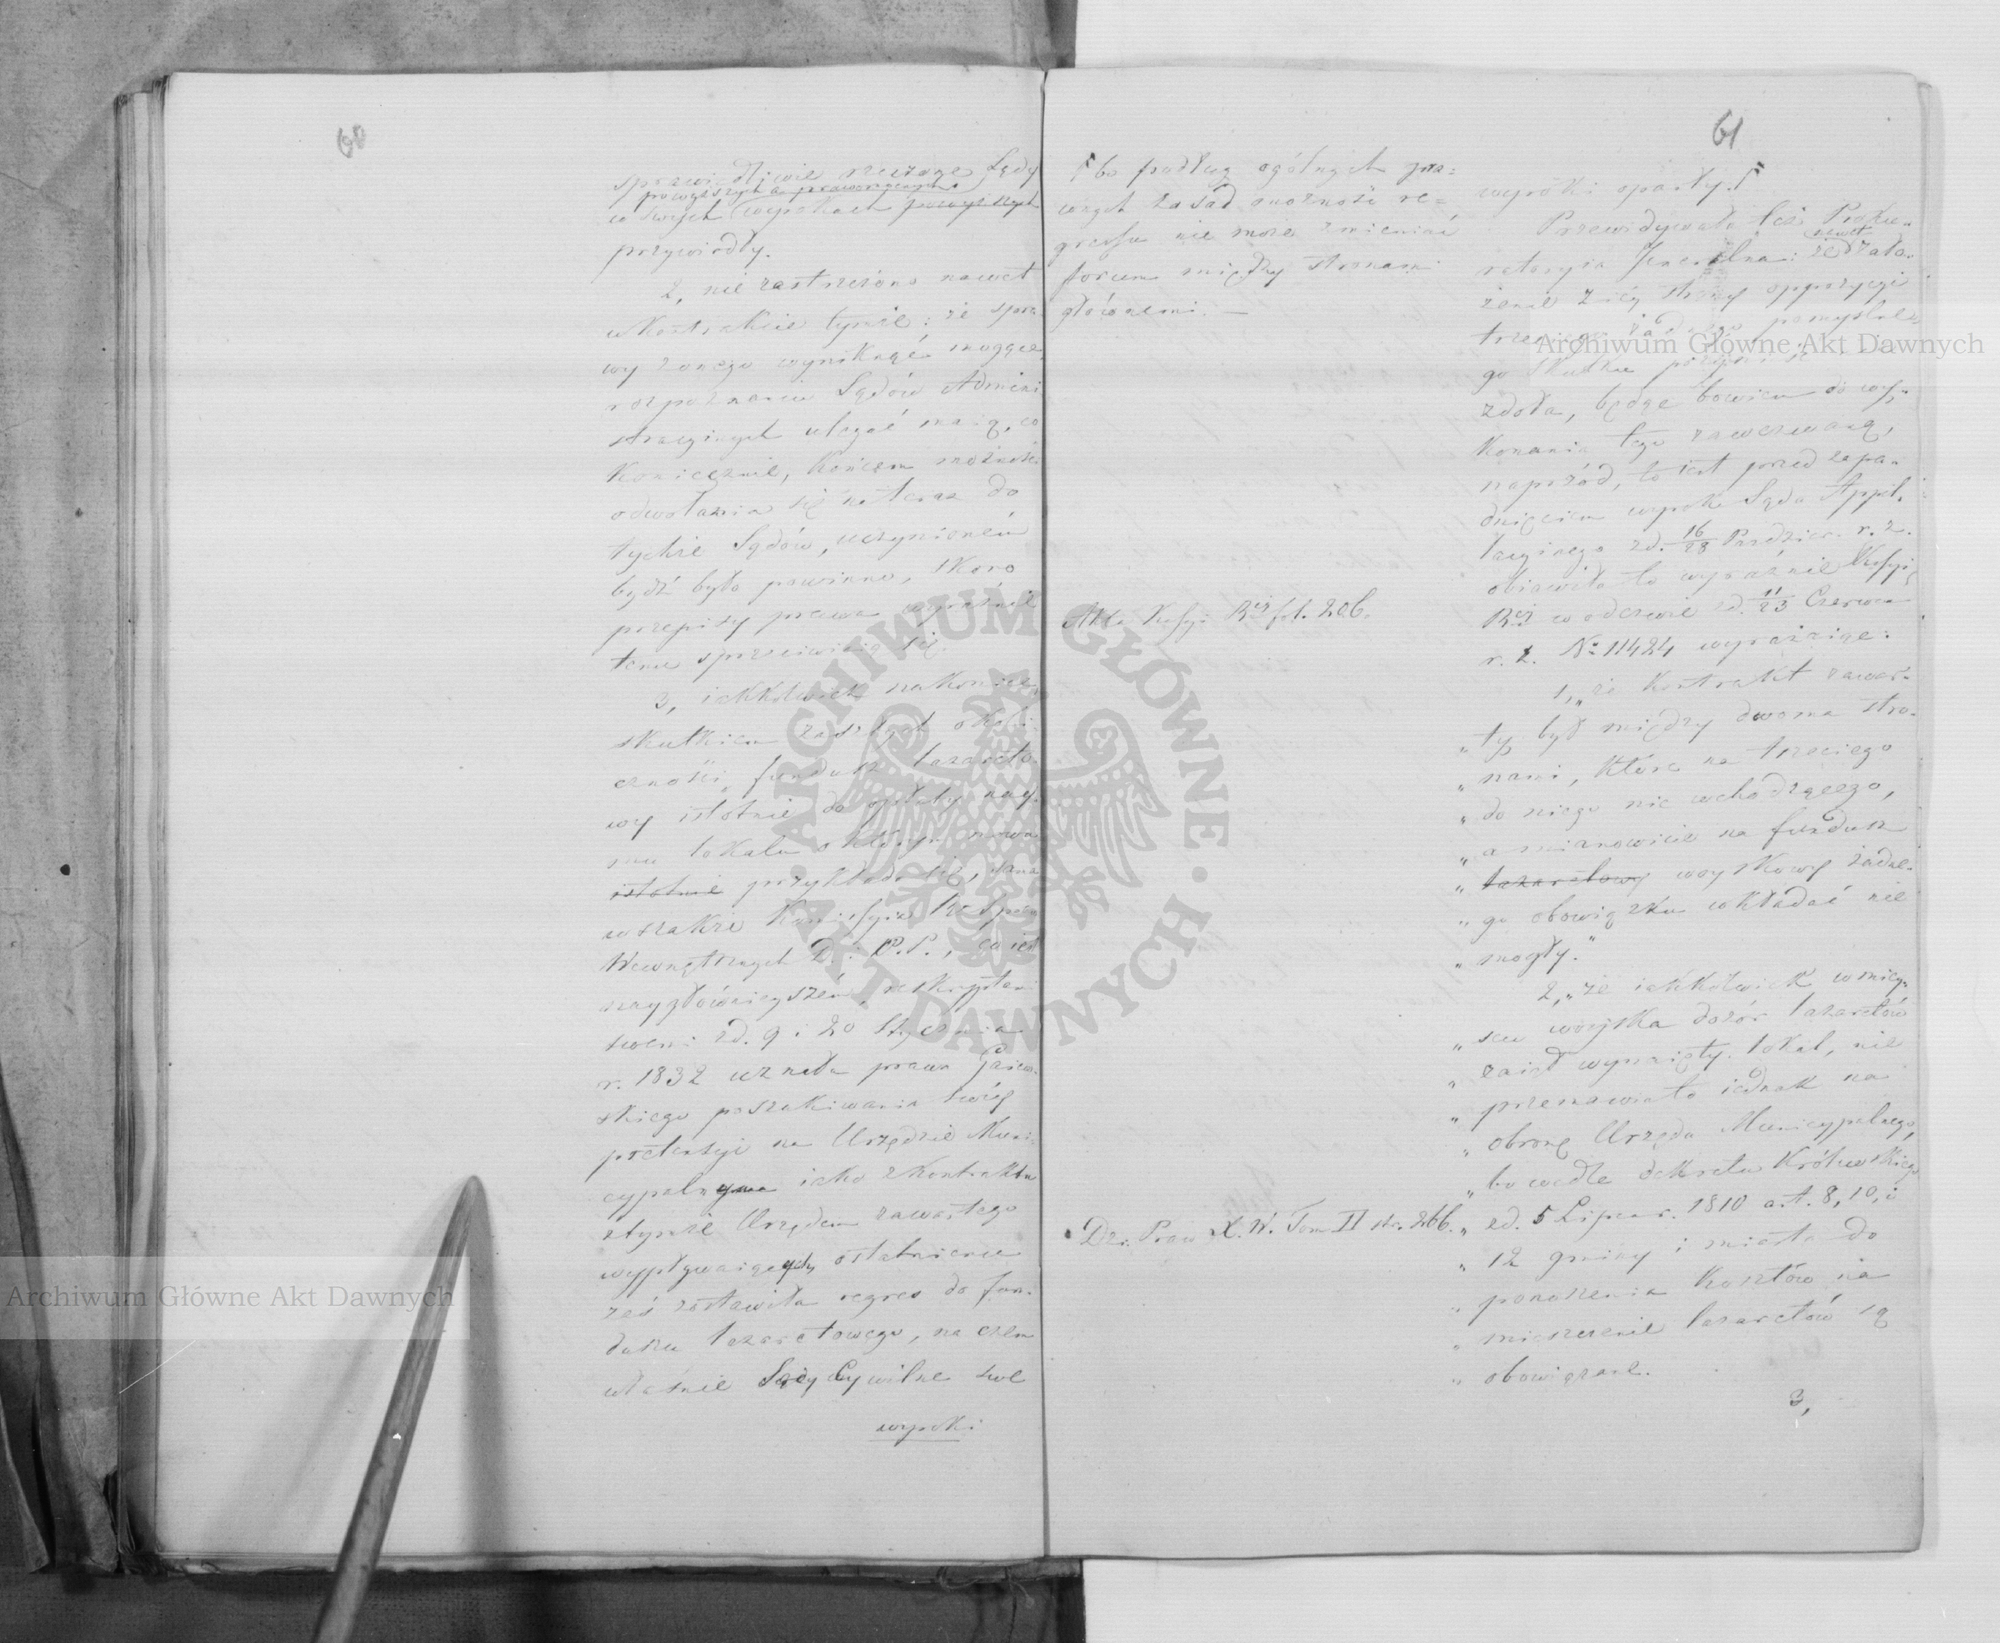 60
sprawiedliwie rzeczone Sądy
powyższych a prawomocnych
w swych wyrokach powyższych
przywiodły.
2, nie zastrzeżono nawet
w kontrakcie tymże; że spra
wy z onego wynikać mogące
rozpoznaniu Sądów Admini
stracyinych ulegać maią, co
koniecznie, końcem możności
odwołania się na teraz do
tychże Sądów, uczynionem
bydź było powinno, skoro
przepisy prawa wyraźnie
temu sprzeciwiaią się.
3, iakkolwiek nakoniec
skutkiem zaszłych okoli
czności, fundusz lazareto
wy istotnie do opłaty nay
mu lokalu o którym mowa
istotnie przykłada się, sama
wszakże Kommissyia Rz. Spraw
Wewnętrznych D. i O. P., co iest
naygłównieyszem, reskryptami
swemi z d. 9 i 20 Stycznia
r. 1832 uznała prawa Gaiew-
skiego poszukiwania swéy
pretensyi na Urzędzie Muni-
cypalnym iako z kontraktu
z tymże Urzędem zawartego
wypływaiących, ostatniemu
zaś zostawiła regres do fun-
duszu lazaretowego, na czem
właśnie Sądy Cywilne swe
wyroki
61
bo podług ogólnych pra=
wnych zasad możność re=
gressu nie może zmieniać
forum między stronami
głównemi. —
Akta Kssyi Rzą. fol. 206.
Dz. Praw X. W. Tom II str. 266.
wyroki oparły.
Przewidywała też Proku-
nawet
ratorya Jeneralna: że zało-
żenie z iéy strony oppozycyi
trzeciego żadnego pomyślne-
go skutku
zdoła, będąc bowiem do wy-
konania tego zawezwaną,
naprzód, to iest przed zapa-
dnięciem wyroku Sądu Appel-
lacyinego z d. 16/28 Paździer. r. z.
obiawiła to wyraźnie Kssyi
Rzą. w odezwie z d. 11/23 Czerwca
r. z. No 11424 wyrażaiąc:
1, „że kontrakt zawar-
„ ty był między dwoma stro-
„ nami, które na trzeciego
„ do niego nie wchodzącego,
„ a mianowicie na fundusz
„ lazaretowy woyskowy żadne-
„ go obowiązku wkładać nie
„ mogły."
2, „że iakkolwiek w miey-
„ scu woyska dozór lazaretów
„ zaiął wynaięty lokal, nie
„ przemawiało iednak na
„ obronę Urzędu Municypalnego,
„ bo wedle dekretu Królewskiego
„ z d. 5 Lipca r. 1810 art. 8, 10, i
„ 12 gminy i miasta do
„ ponoszenia kosztów na
„ mieszczenie lazaretów są
„ obowiązane.
3,
Archiwum Główne Akt Dawnych
Archiwum Główne Akt Dawnych
ARCHIWUM GŁÓWNE · AKT DAWNYCH ·